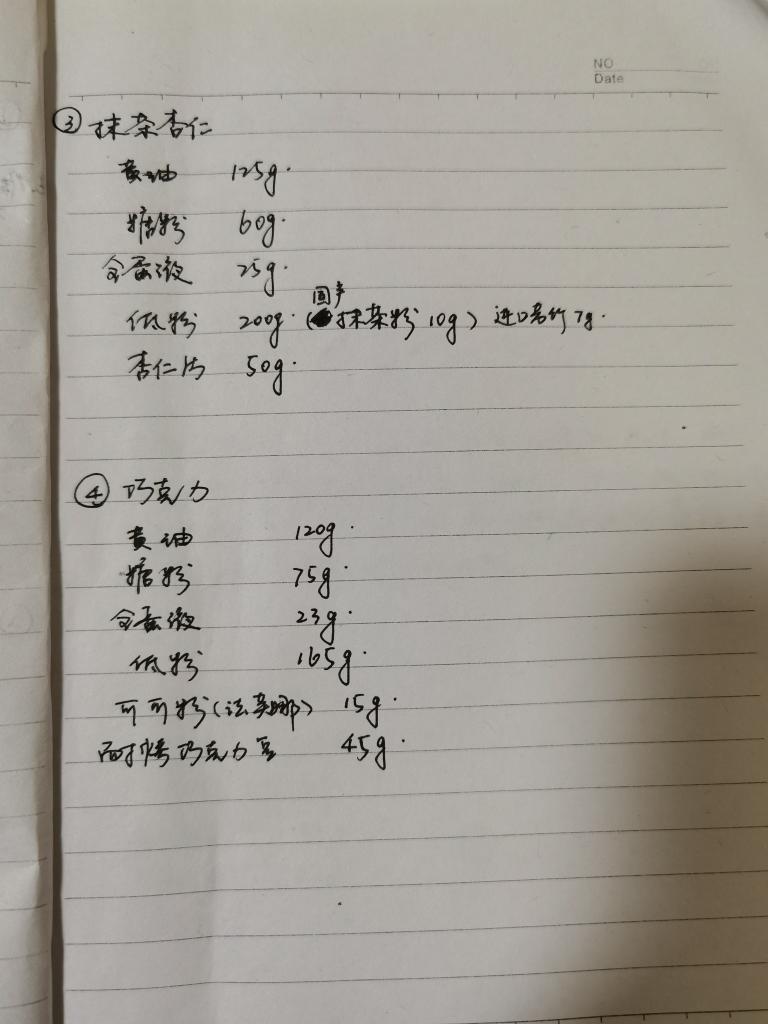 NO
Date
③ 抹茶杏仁
黄油 125g.
糖粉 60g.
全蛋液 25g.
国产
低粉 200g. (抹茶粉 10g) 进口若竹 7g.
杏仁片 50g.
④ 巧克力
黄油 120g.
糖粉 75g.
全蛋液 23g.
低粉 165g.
可可粉(法芙娜) 15g.
耐烤巧克力豆 45g.